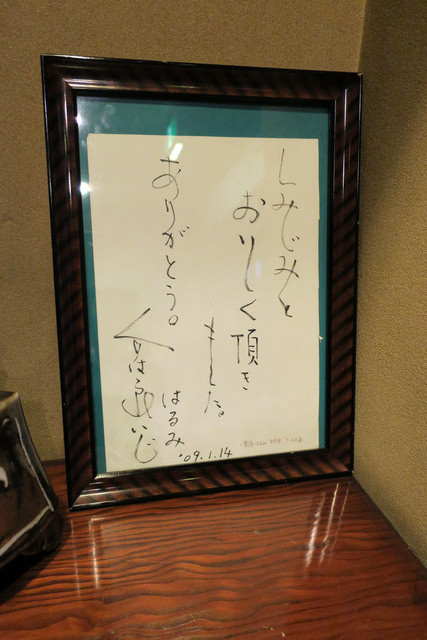 しみじみと
おいしく頂き
ました。
ありがとう。
はるみ
'09.1.14